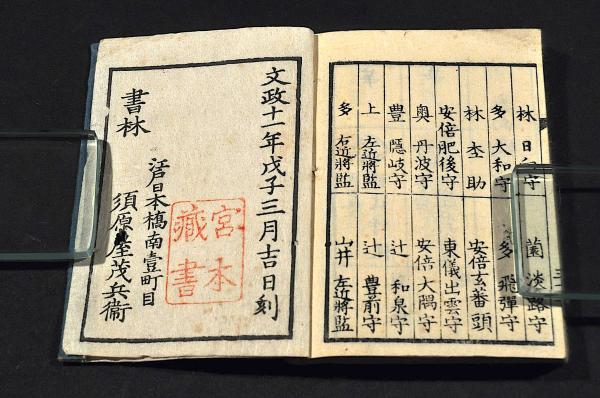 林 日向守
多 大和守
林 杢助
安倍肥後守
奥 丹波守
豊 隱岐守
上 左近將監
多 右近將監
薗 淡路守
多 飛彈守
安倍玄蕃頭
東儀出雲守
安倍大隅守
辻 和泉守
辻 豊前守
山井 左近將監
文政十一年戊子三月吉日刻
宮本
藏書
江戸日本橋南壹町目
書林 須原屋茂兵衞